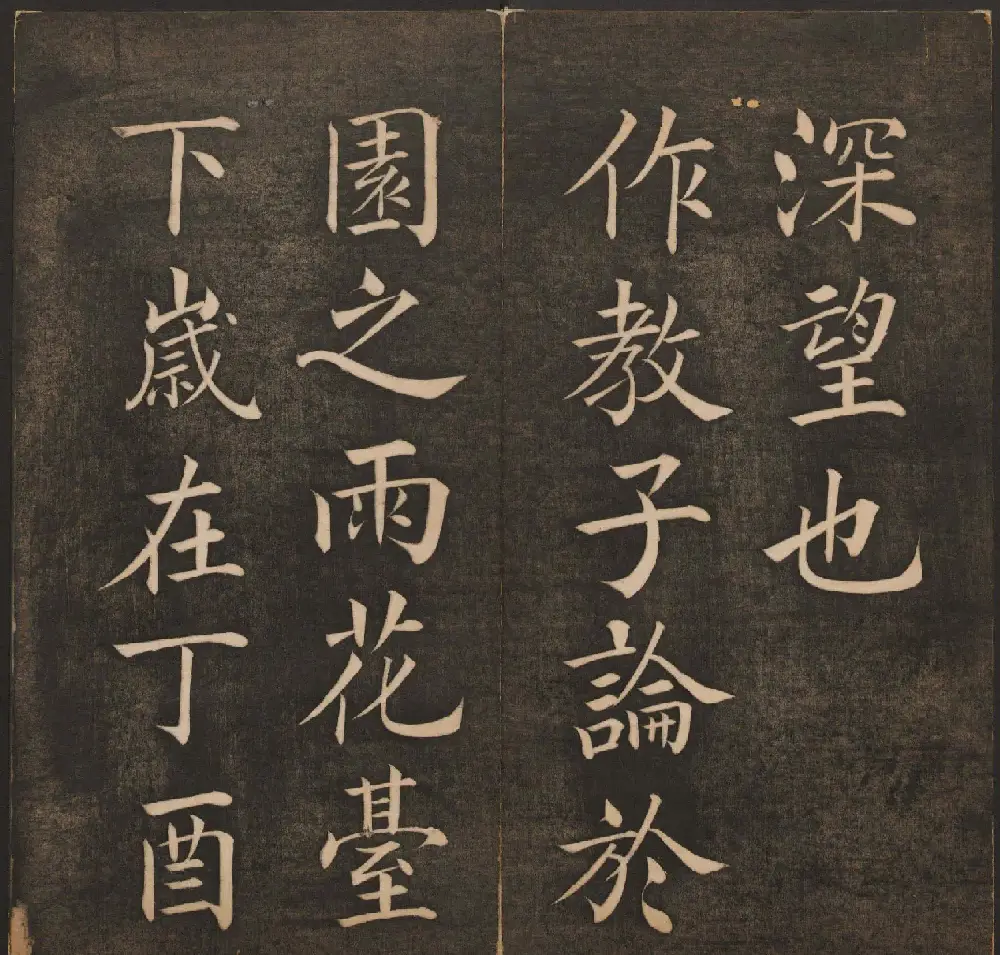 深望也
作教子論於
園之雨花臺
下歲在丁酉